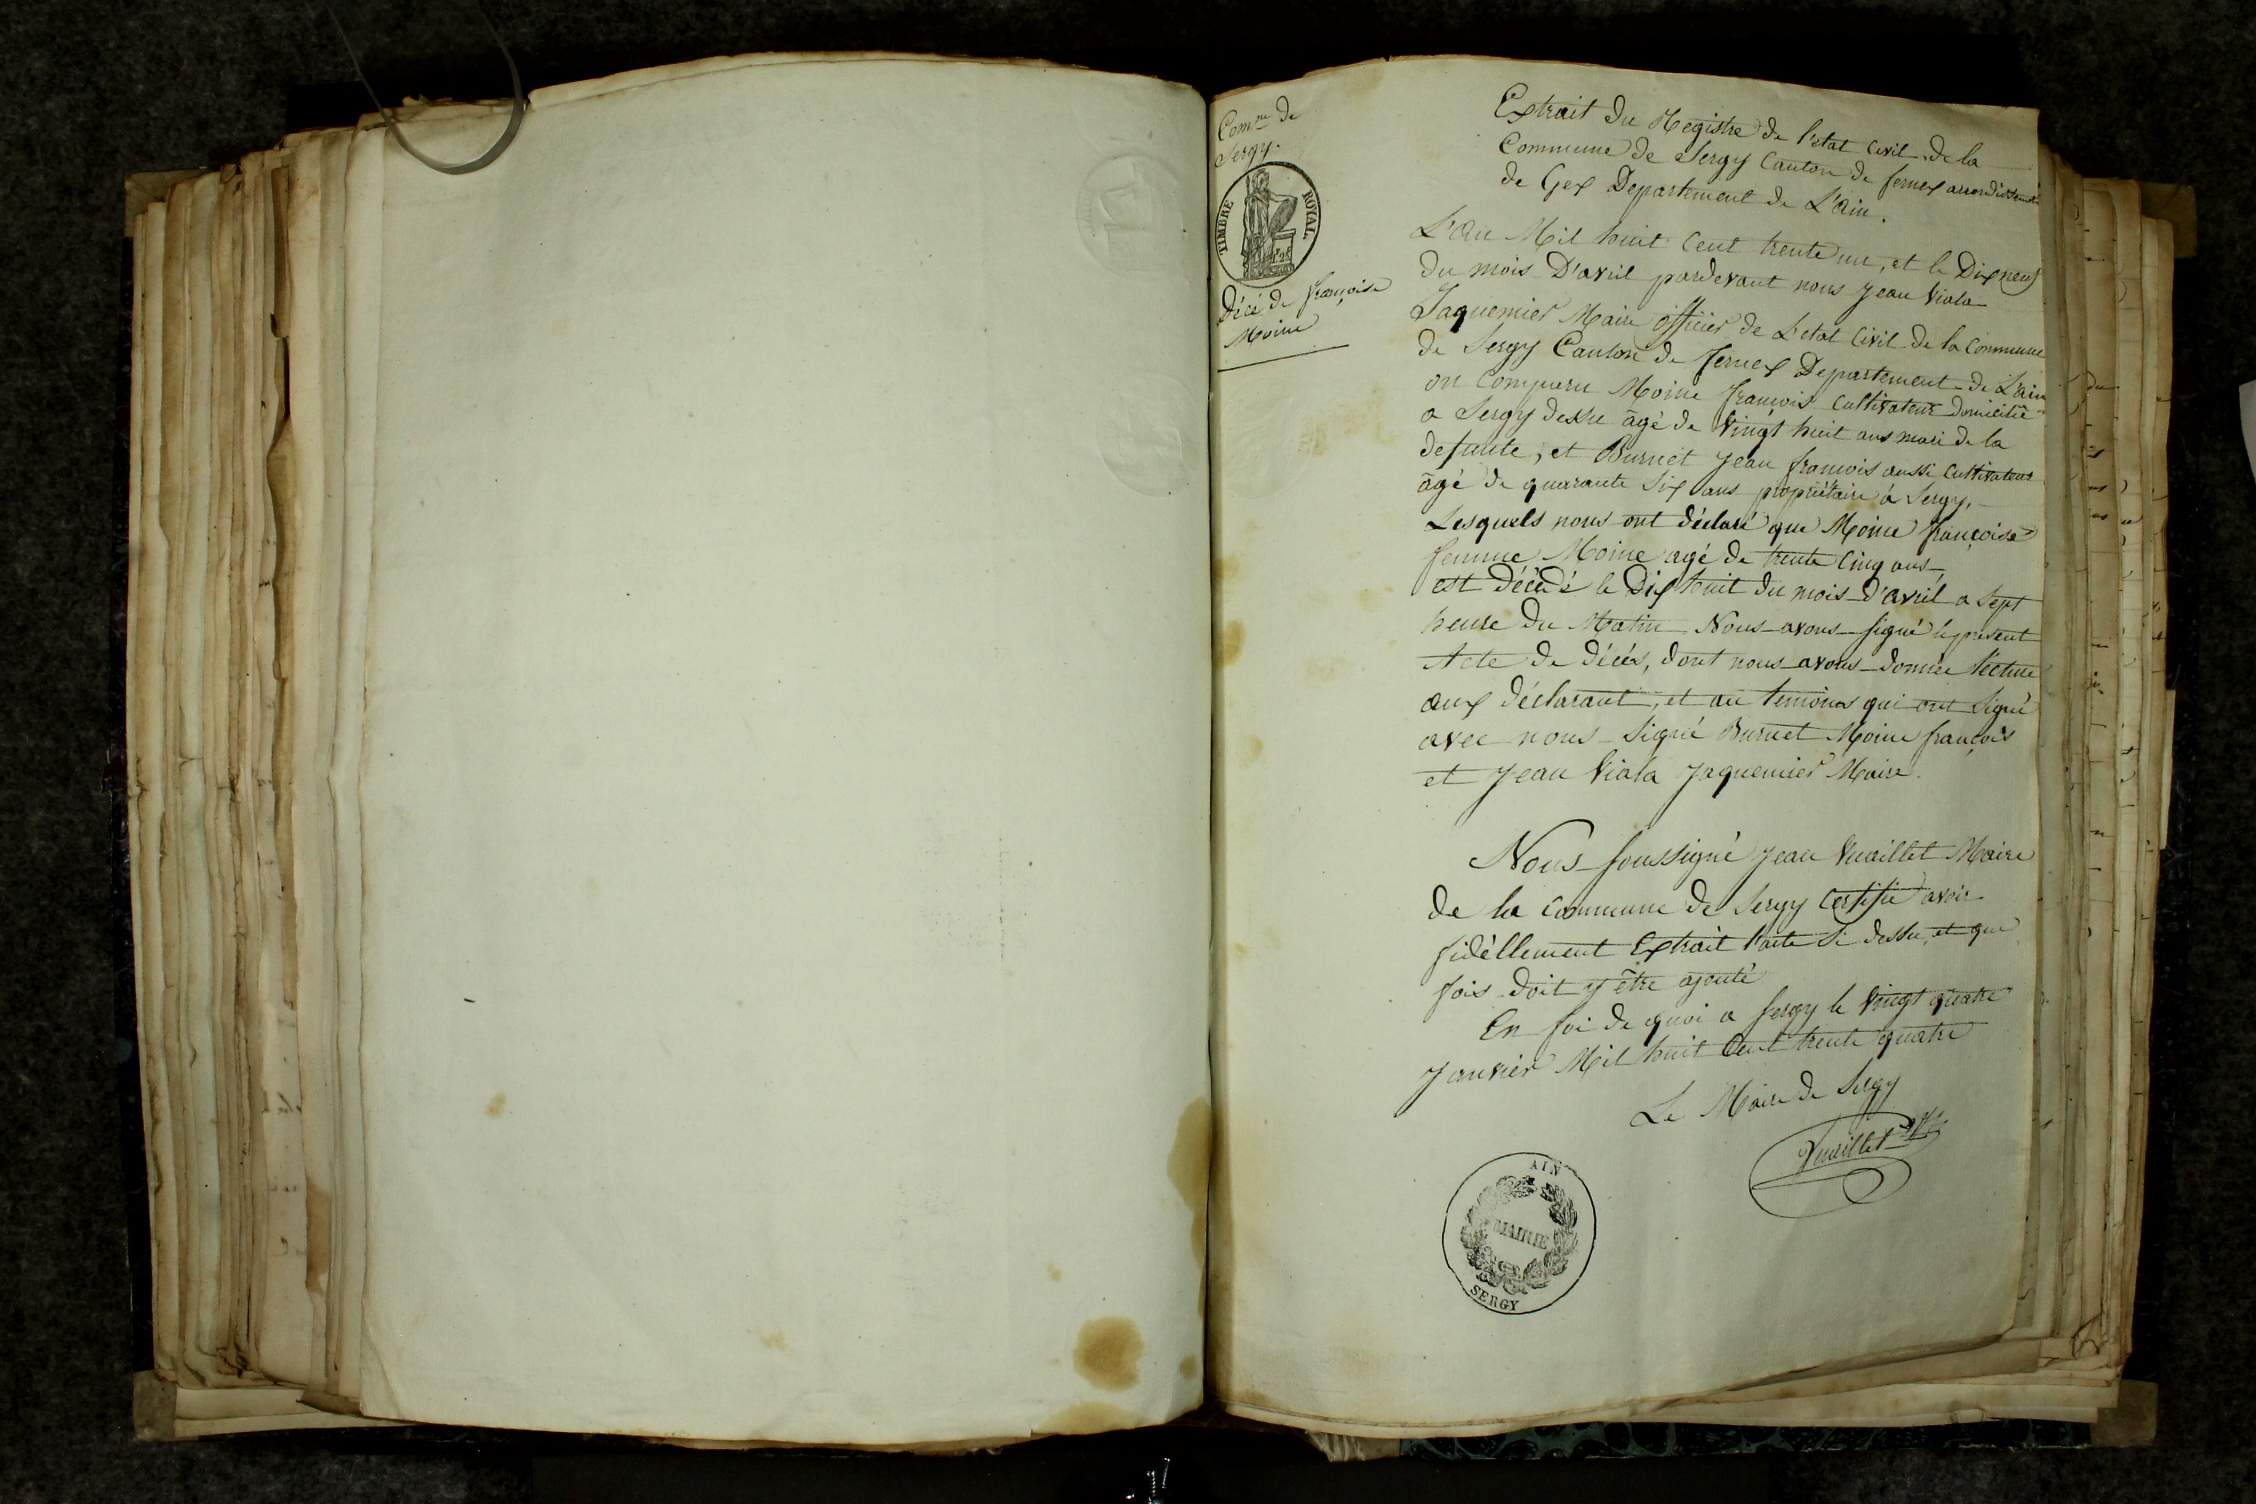 Comne de
Sergy.
TIMBRE ROYAL
Décé de françoise
Moine
Extrait du Registre de l'etat Civil de la
Commune de Sergy Canton de fernex arrondissemt
de Gex Departement de L'ain.
L'an Mil huit Cent trente un, et le Dix neuf
du mois D'avril pardevant nous Jean Viala
Jaquemier Maire officier de L'etat Civil de la Commune
de Sergy Canton de fernex Departement de L'ain
on Comparu Moine francois Cultivateur domicilié
a Sergy dessu âgé de Vingt huit ans mari de la
defunte, et Burnet Jean francois aussi Cultivateur
âgé de quarante Six ans propriétaire à Sergy,
Lesquels nous ont déclaré que Moine françoise
femme Moine agé de trente Cinq ans,
est Décédé le Dix huit du mois D'avril a Sept
heure du Matin Nous avons signé le present
Acte de décés, dont nous avons donnée lecture
aux déclarant, et au temoins qui ont Signé
avec nous Signé Burnet Moine françois
et Jean Viala Jaquemier Maire.
Nous soussigné Jean Vuaillet Maire
de la Commune de Sergy Certifie avoir
fidèllement Extrait l'acte si dessu, et que
fois doit y être ajouté
En foi de quoi a Sergy le Vingt quatre
Janvier Mil huit Cent trente quatre
Le Maire de Sergy
Vuaillet
AIN
MAIRIE
SERGY